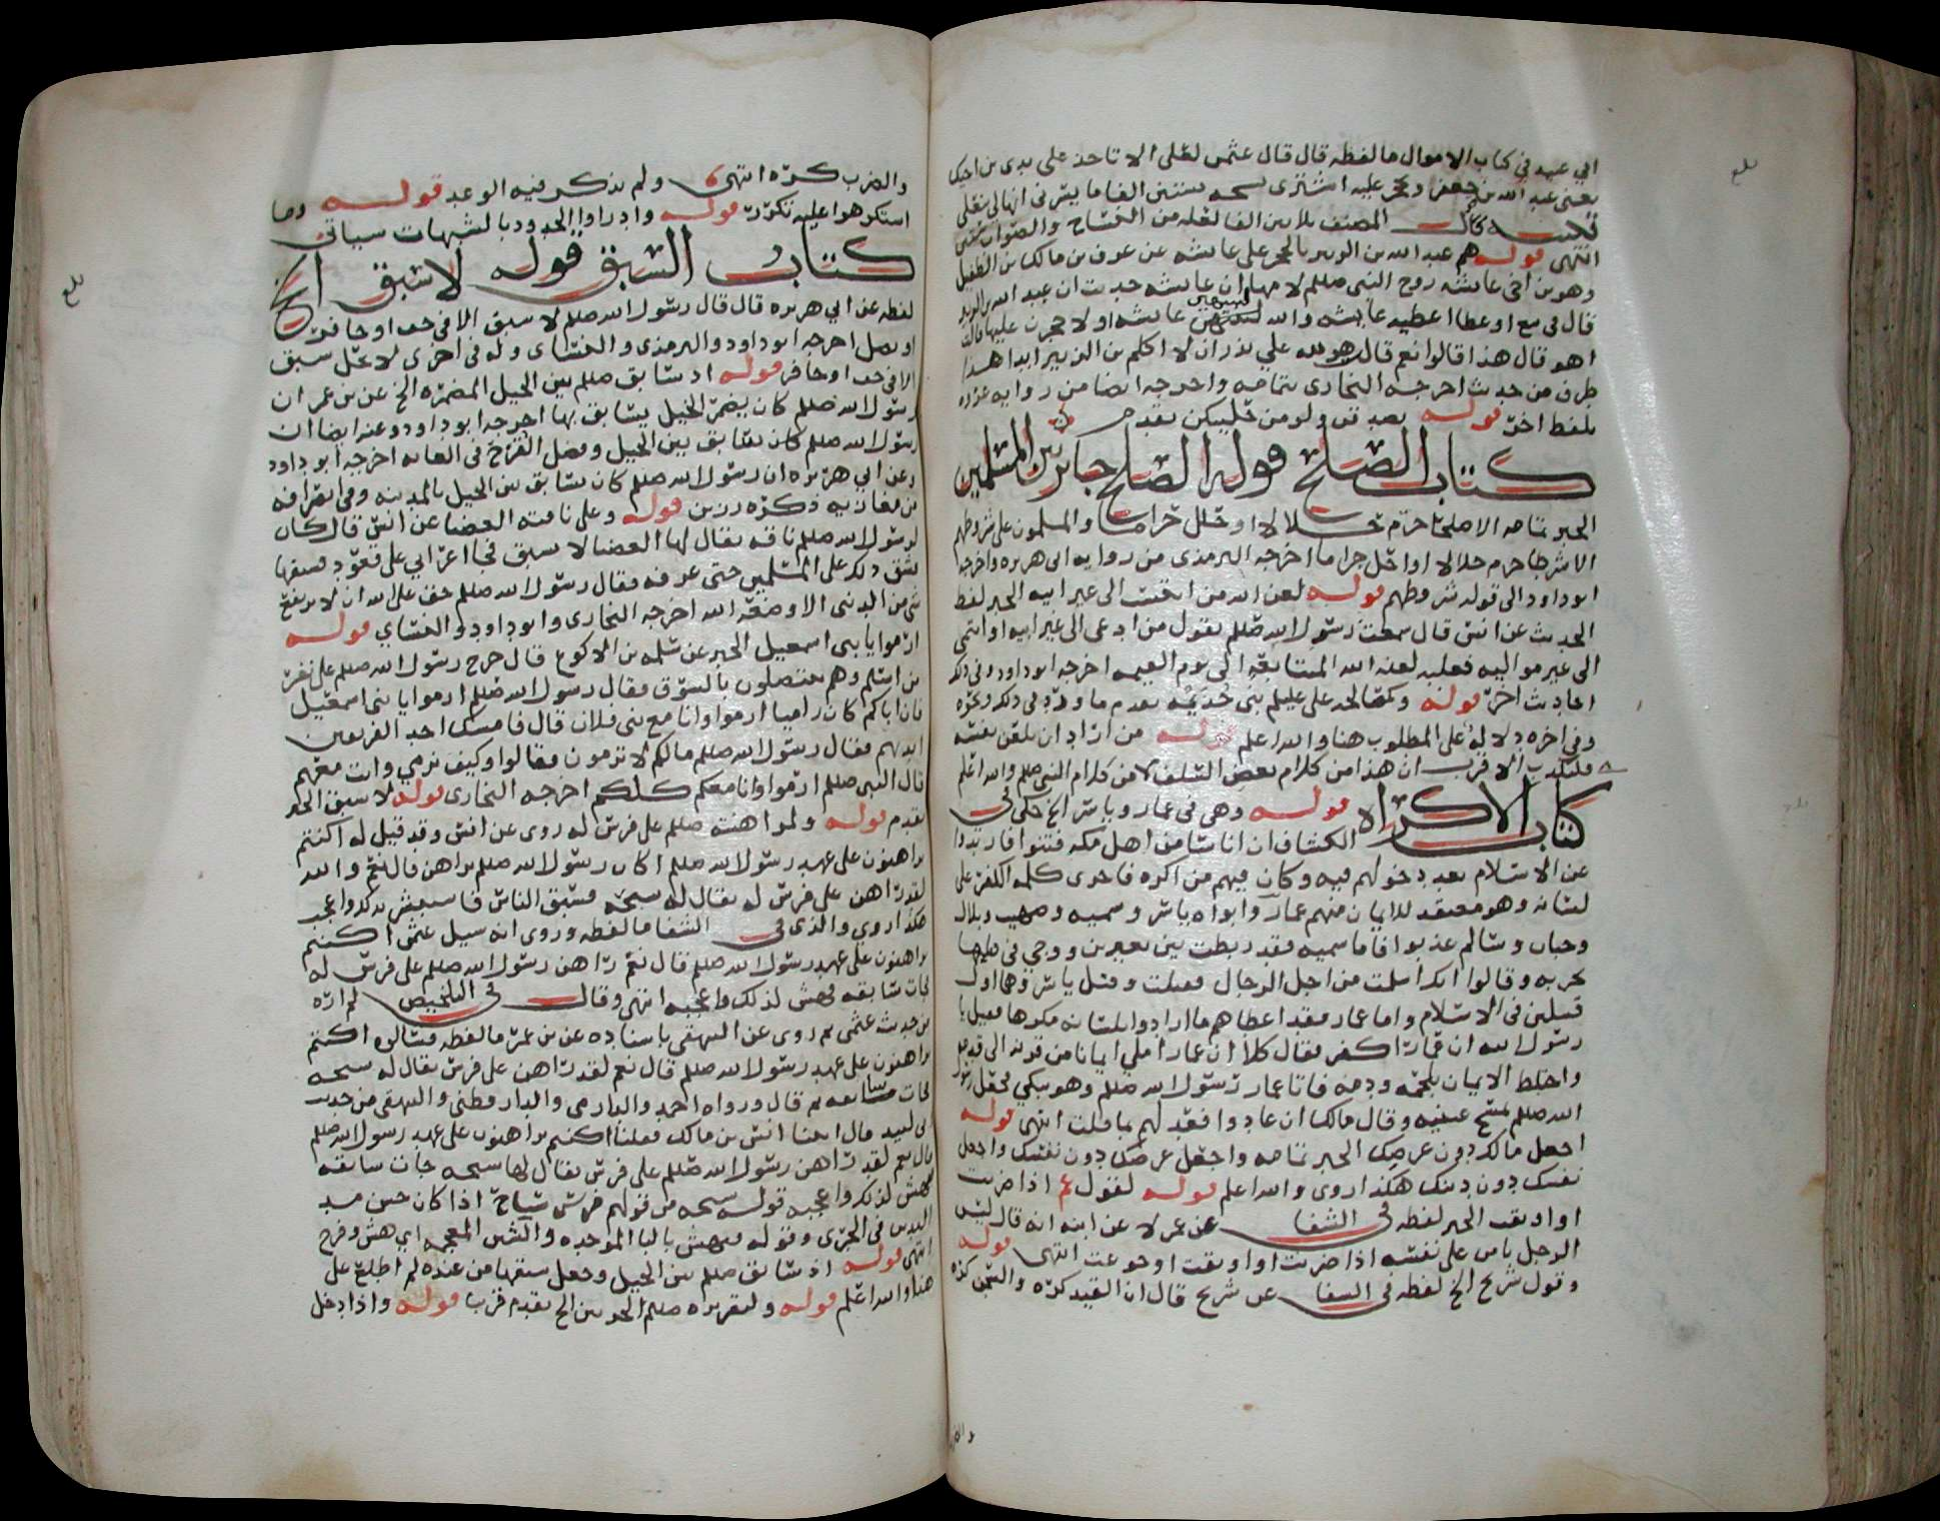 ابي عبيد في كتاب الاموال ما لفظه قال قال عثمن لعلي الا تاخذ على يدي بن اخيك
يعني عبد الله بن جعفر وتحجر عليه اشترى سبخه بستين الفا ما يسرني انها لي بنعلي
انتهى قوله هم عبد الله بن الزبير بالحجر على عائشه عن عوف بن مالك بن الطفيل
وهو بن اخي عائشه زوج النبي صللم لامها ان عائشه حدثت ان عبد الله بن الزبير
قال في بيع او عطا اعطته عائشه والله لتنتهين عائشه او لاحجرن عليها قالت
اهو قال هذا قالوا نعم قال هو لله علي نذر ان لا اكلم بن الزبير ابدا هذا
طرف من حديث اخرجه البخاري بتمامه واخرجه ايضا من روايه عروه
بلفظ اخر قوله تصدقن ولو من حليكن تقدم
كتاب الصلح قوله الصلح جائز بين المسلمين
الخبر تمامه الا صلحا حرم حلالا او حلل حراما والمسلمون على شروطهم
الا شرطا حرم حلالا او احل حراما اخرجه الترمذي من روايه ابي هريره واخرجه
ابو داود الى قوله شروطهم قوله لعن الله من انتمى الى غير ابيه الخبر لفظ
الحديث عن انس قال سمعت رسول الله صللم يقول من ادعى الى غير ابيه او انتمى
الى غير مواليه فعليه لعنة الله المتتابعه الى يوم القيمه اخرجه ابو داود وفي ذلك
احاديث اخر قوله وكمصالحة علي عليلم بني جذيمه تقدم ما ورد في ذلك ونحوه
وفي اخره دلاله على المطلوب هنا والله اعلم قوله من اراد ان
الاقرب ان هذا من كلام بعض السلف لا من كلام النبي صللم والله اعلم
كتاب الاكراه قوله وهي في عمار وياسر الخ حكى في
الكشاف ان اناسا من اهل مكه فتنوا فارتدوا
عن الاسلام بعد دخولهم فيه وكان فيهم من اكره فاجرى كلمه الكفر على
لسانه وهو معتقد للايمان منهم عمار وابواه ياسر وسميه وصهيب وبلال
وخباب وسالم عذبوا فاما سميه فقد ربطت بين بعيرين ووجي في قبلها
بحربه وقالوا انك اسلمت من اجل الرجال فقتلت وقتل ياسر وهما اول
قتيلين في الاسلام واما عمار فقد اعطاهم ما ارادوا بلسانه مكرها فقيل يا
رسول الله ان عمارا كفر فقال كلا ان عمارا ملي ايمانا من قرنه الى قدمه
واختلط الايمان بلحمه ودمه فاتا عمار رسول الله صللم وهو يبكي فجعل رسول
الله صللم يمسح عينيه وقال مالك ان عادوا فعد لهم بما قلت انتهى قوله
اجعل مالك دون عرضك الخبر تمامه واجعل عرضك دون نفسك واجعل
نفسك دون دينك هكذا روى والله اعلم قوله لقول عم اذا ضربت
او اوثقت الخبر لفظه في الشفا عن عمر لا عن ابنه انه قال ليس
الرجل يامن على نفسه اذا ضربت او اوثقت او جوعت انتهى قوله
وقول شريح الخ لفظه في الشفا عن شريح قال ان القيد كره والسجن كره
والضرب كره انتهى ولم يذكر فيه الوعيد قوله وما
استكرهوا عليه تكرر قوله وادراوا الحدود بالشبهات سياتي
كتاب السبق قوله لا سبق الخ
لفظه عن ابي هريره قال قال رسول الله صللم لا سبق الا في خف او حافر
او نصل اخرجه ابو داود والترمذي والنسائي وله في اخرى لا يحل سبق
الا في خف او حافر قوله اذ سابق صللم بين الخيل المضمره الخ عن بن عمر ان
رسول الله صللم كان يضمر الخيل يسابق بها اخرجه ابو داود وعنه ايضا ان
رسول الله صللم كان سابق بين الخيل وفضل القرح في الغايه اخرجه ابو داود
وعن ابي هريره ان رسول الله صللم كان سابق بين الخيل بالمدينه وفي
من مغازيه ذكره رزين قوله وعلى ناقته العضبا عن انس قال كان
لرسول الله صللم ناقه يقال لها العضبا لا تسبق فجا اعرابي على قعود فسبقها
فشق ذلك على المسلمين حتى عرفه فقال رسول الله صللم حق على الله ان لا يرتفع
شي من الدنيا الا وضعه الله اخرجه البخاري وابو داود والنسائي قوله
ارموا يا بني اسمعيل الخبر عن سلمه بن الاكوع قال خرج رسول الله صللم على نفر
من اسلم وهم ينتضلون بالسوق فقال رسول الله صللم ارموا يا بني اسمعيل
فان اباكم كان راميا ارموا وانا مع بني فلان قال فامسك احد الفريقين
بايديهم فقال رسول الله صللم مالكم لا ترمون فقالوا وكيف نرمي وانت معهم
قال النبي صللم ارموا وانا معكم كلكم اخرجه البخاري قوله لا سبق الخ
تقدم قوله ولمراهنته صللم على فرس له روى عن انس وقد قيل له اكنتم
تراهنون على عهد رسول الله صللم اكان رسول الله صللم يراهن قال نعم والله
لقد راهن على فرس له يقال له سبحه فسبق الناس فانهش لذلك واعجبه
هكذا روى والذي في الشفا ما لفظه وروى انه سيل عثمن اكنتم
تراهنون على عهد رسول الله صللم قال نعم راهن رسول الله صللم على فرس له
فجات سابقه فهش لذلك واعجبه انتهى وقال في التلخيص لم اره
من حديث عثمن ثم روى عن البيهقي باسناده عن بن عمر ما لفظه فسالوه اكنتم
تراهنون على عهد رسول الله صللم قال نعم لقد راهن على فرس يقال له سبحه
فجات سابقه ثم قال ورواه احمد والدارمي والدارقطني والبيهقي من حديث
ابي لبيد قال اتينا انس بن مالك فقلنا اكنتم تراهنون على عهد رسول الله صللم
قال نعم لقد راهن رسول الله صللم على فرس يقال لها سبحه جات سابقه
فهش لذلك واعجبه قوله سبحه من قولهم فرس سباح اذا كان حسن مد
اليدين في الجري وقوله فبهش بالبا الموحده والشين المعجمه اي هش وفرح
انتهى قوله اذ سابق صللم بين الخيل وجعل سبقها من عنده لم اطلع على
هذا والله اعلم قوله ولتقريره صللم الخ تقدم قريبا قوله واذا دخل